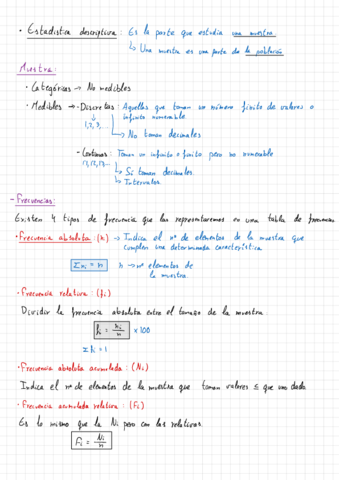 · Estadística descriptiva: Es la parte que estudia una muestra.
↳ Una muestra es una parte de la población
Muestra:
· Categóricas → No medibles
· Medibles → Discretas: Aquellas que toman un número finito de valores o
infinito numerable
1, 2, 3, ...
↳ No toman decimales
- Continuas: Toman un infinito o finito pero no numerable
↳ Si toman decimales.
↳ Intervalos
- Frecuencias:
Existen 4 tipos de frecuencia que las representaremos en una tabla de frecuencias
· Frecuencia absoluta: → Indica el nº de elementos de la muestra que
cumplen una determinada característica.
Σni = n n → nº elementos de
la muestra.
· Frecuencia relativa: (fi)
Dividir la frecuencia absoluta entre el tamaño de la muestra:
fi = ni/n × 100
Σ fi = 1
· Frecuencia absoluta acumulada: (Ni)
Indica el nº de elementos de la muestra que toman valores ≤ que uno dado
· Frecuencia acumulada relativa: (Fi)
Es lo mismo que la Ni pero con las relativas.
Fi = Ni/n